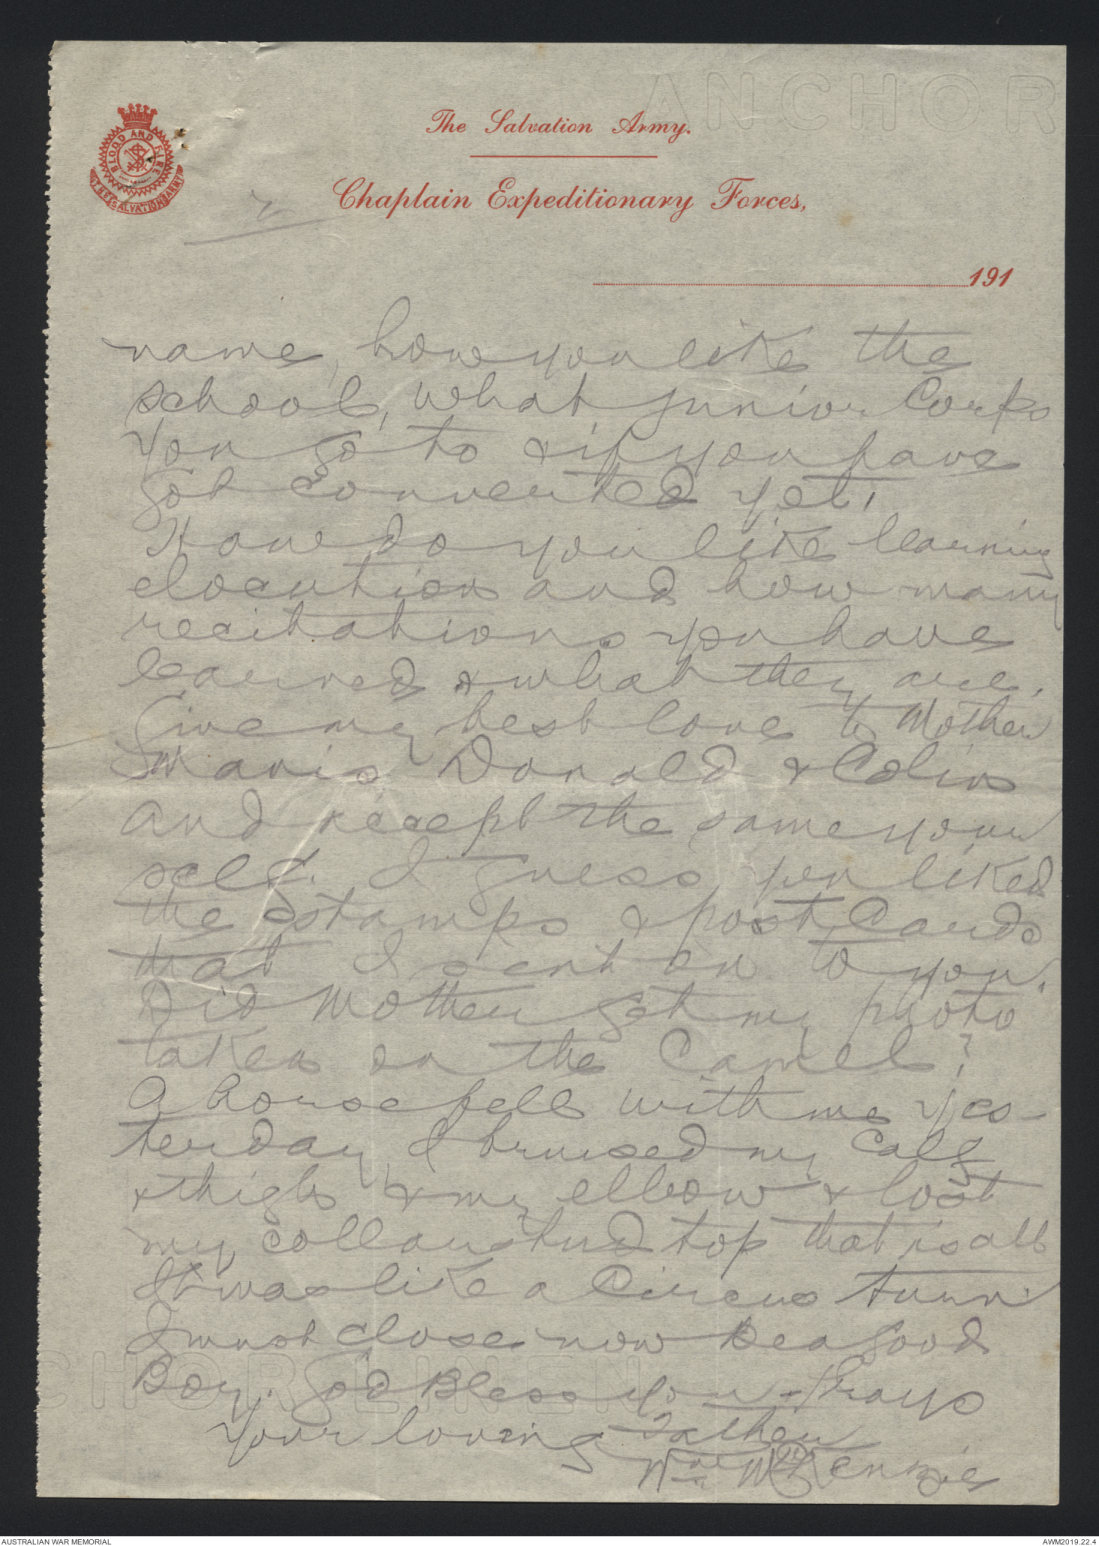 ANCHOR
The Salvation Army.
BLOOD AND FIRE
THE SALVATION ARMY
Chaplain Expeditionary Forces,
2
191
name, how you like the
school, what junior Corps
you go to & if you have
got converted yet.
How do you like learning
elocution and how many
recitations you have
learned & what they are.
Give my best love to Mother
Mavis, Donald & Colin
and accept the same your
self. I guess you liked
the stamps & post Cards
that I sent on to you.
Did Mother get my photo
taken on the Camel?
A horse fell with me yes-
terday I bruised my calf
& thigh & my elbow & lost
my collar stud top that is all
It was like a Circus turn
I must close now Be a good
Boy. God Bless you - Prays
Your loving Father
Wm McKenzie
CHOR LINEN
AUSTRALIAN WAR MEMORIAL
AWM2019.22.4